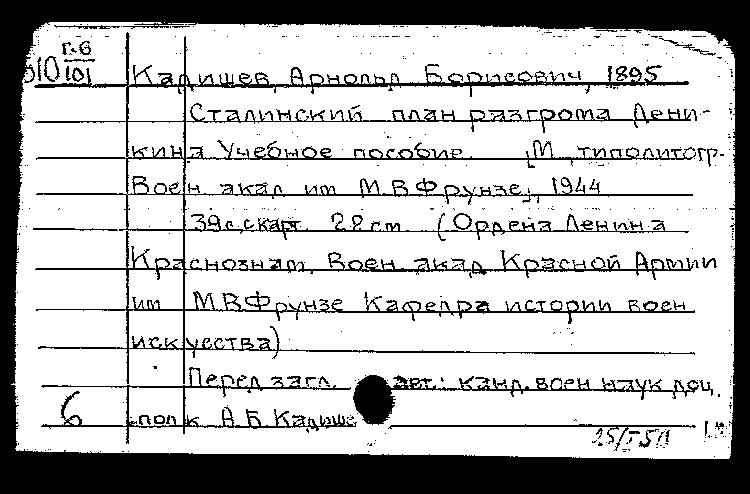 Г.6
010 101
Кадишев, Арнольд Борисович, 1895
Сталинский план разгрома Дени-
кина Учебное пособие. [М, типолитогр.
Воен акад им М.В.Фрунзе], 1944
39с, с карт. 28 см. (Ордена Ленина
Краснознам. Воен. акад Красной Армии
им М.В.Фрунзе Кафедра истории воен
искусства)
Перед загл. авт.: канд. воен наук доц.
полк А.Б. Кадише
6